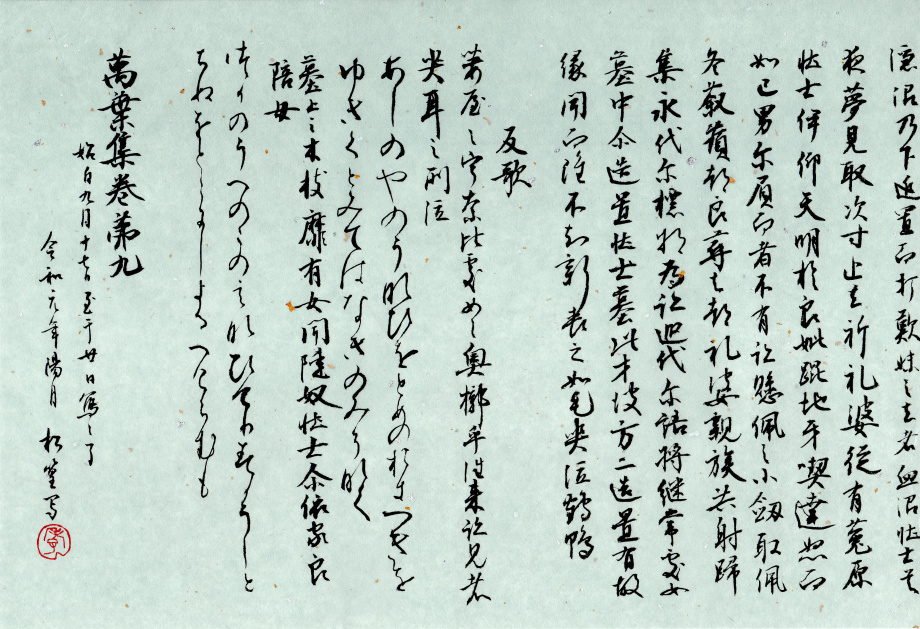 隠沼乃下延置而打歎妹之去者血沼壮士其
夜夢見取次寸追去祁礼婆後有菟原
壮士伊仰天叫於良妣地牙喫建怒而
如己男尓負而者不有跡懸佩之小劔取佩
冬薮蕷都良尋去祁礼婆親族共射歸
集永代尓標将為跡遐代尓語将継常處女
墓中尓造置壮士墓此方彼方二造置有故
縁聞而雖不知新喪之如毛哭泣鶴鴨
反歌
葦屋之宇奈比處女之奥槨乎徃来跡見者
哭耳之所泣
あしのやのうなひをとめのおきつきを
ゆきくとみてはなきのみしなく
墓上之木枝靡有如聞陳奴壮士尓依家良
信母
はかのうへのこのえなひけりきくかこと
ちぬをとこにしよるへけらしも
萬葉集巻第九
始自九月十七日至于廿日寫之了
令和元年陽月 松堂写